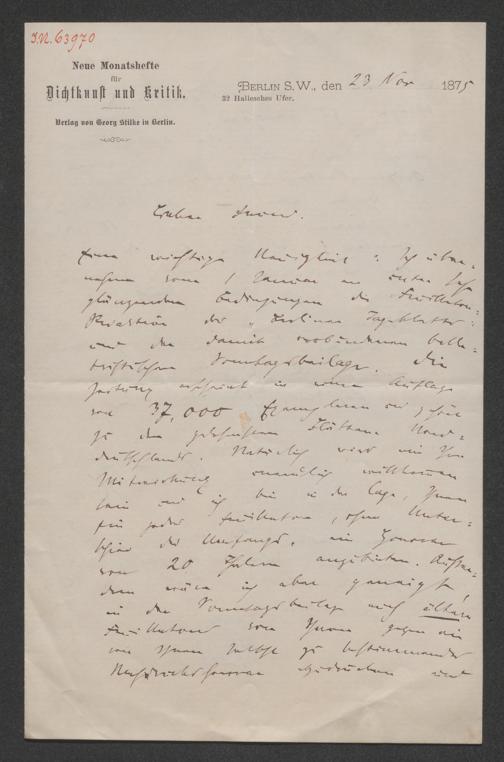 I.N. 63970
Neue Monatshefte
für
Dichtkunst und Kritik.
Verlag von Georg Stilke in Berlin.
BERLIN S.W., den 23 Nov 1875
32 Hallesches Ufer.
Lieber Freund.
Eine wichtige Neuigkeit: Ich über-
nehme vom 1 Januar an unter sehr
glänzenden Bedingungen die Feuilleton-
Redaktion des "Berliner Tageblatts"
und der damit verbundenen belle-
tristischen Sonntagsbeilage. Die
Zeitung erscheint in einer Auflage
von 37,000 Exemplaren und gehört
zu den gelesensten Blättern Nord-
deutschlands. Natürlich wird mir Ihre
Mitwirkung willkommen
sein und ich bin in der Lage, Ihnen
für jedes Feuilleton, ohne Unter-
schied des Umfangs, ein Honorar
von 20 Thalern anzubieten. Außer-
dem wäre ich aber geneigt,
in der Sonntagsbeilage auch ältere
Feuilletons von Ihnen gegen ein
von Ihnen selbst zu bestimmendes
Nachdruckshonorar abzudrucken und